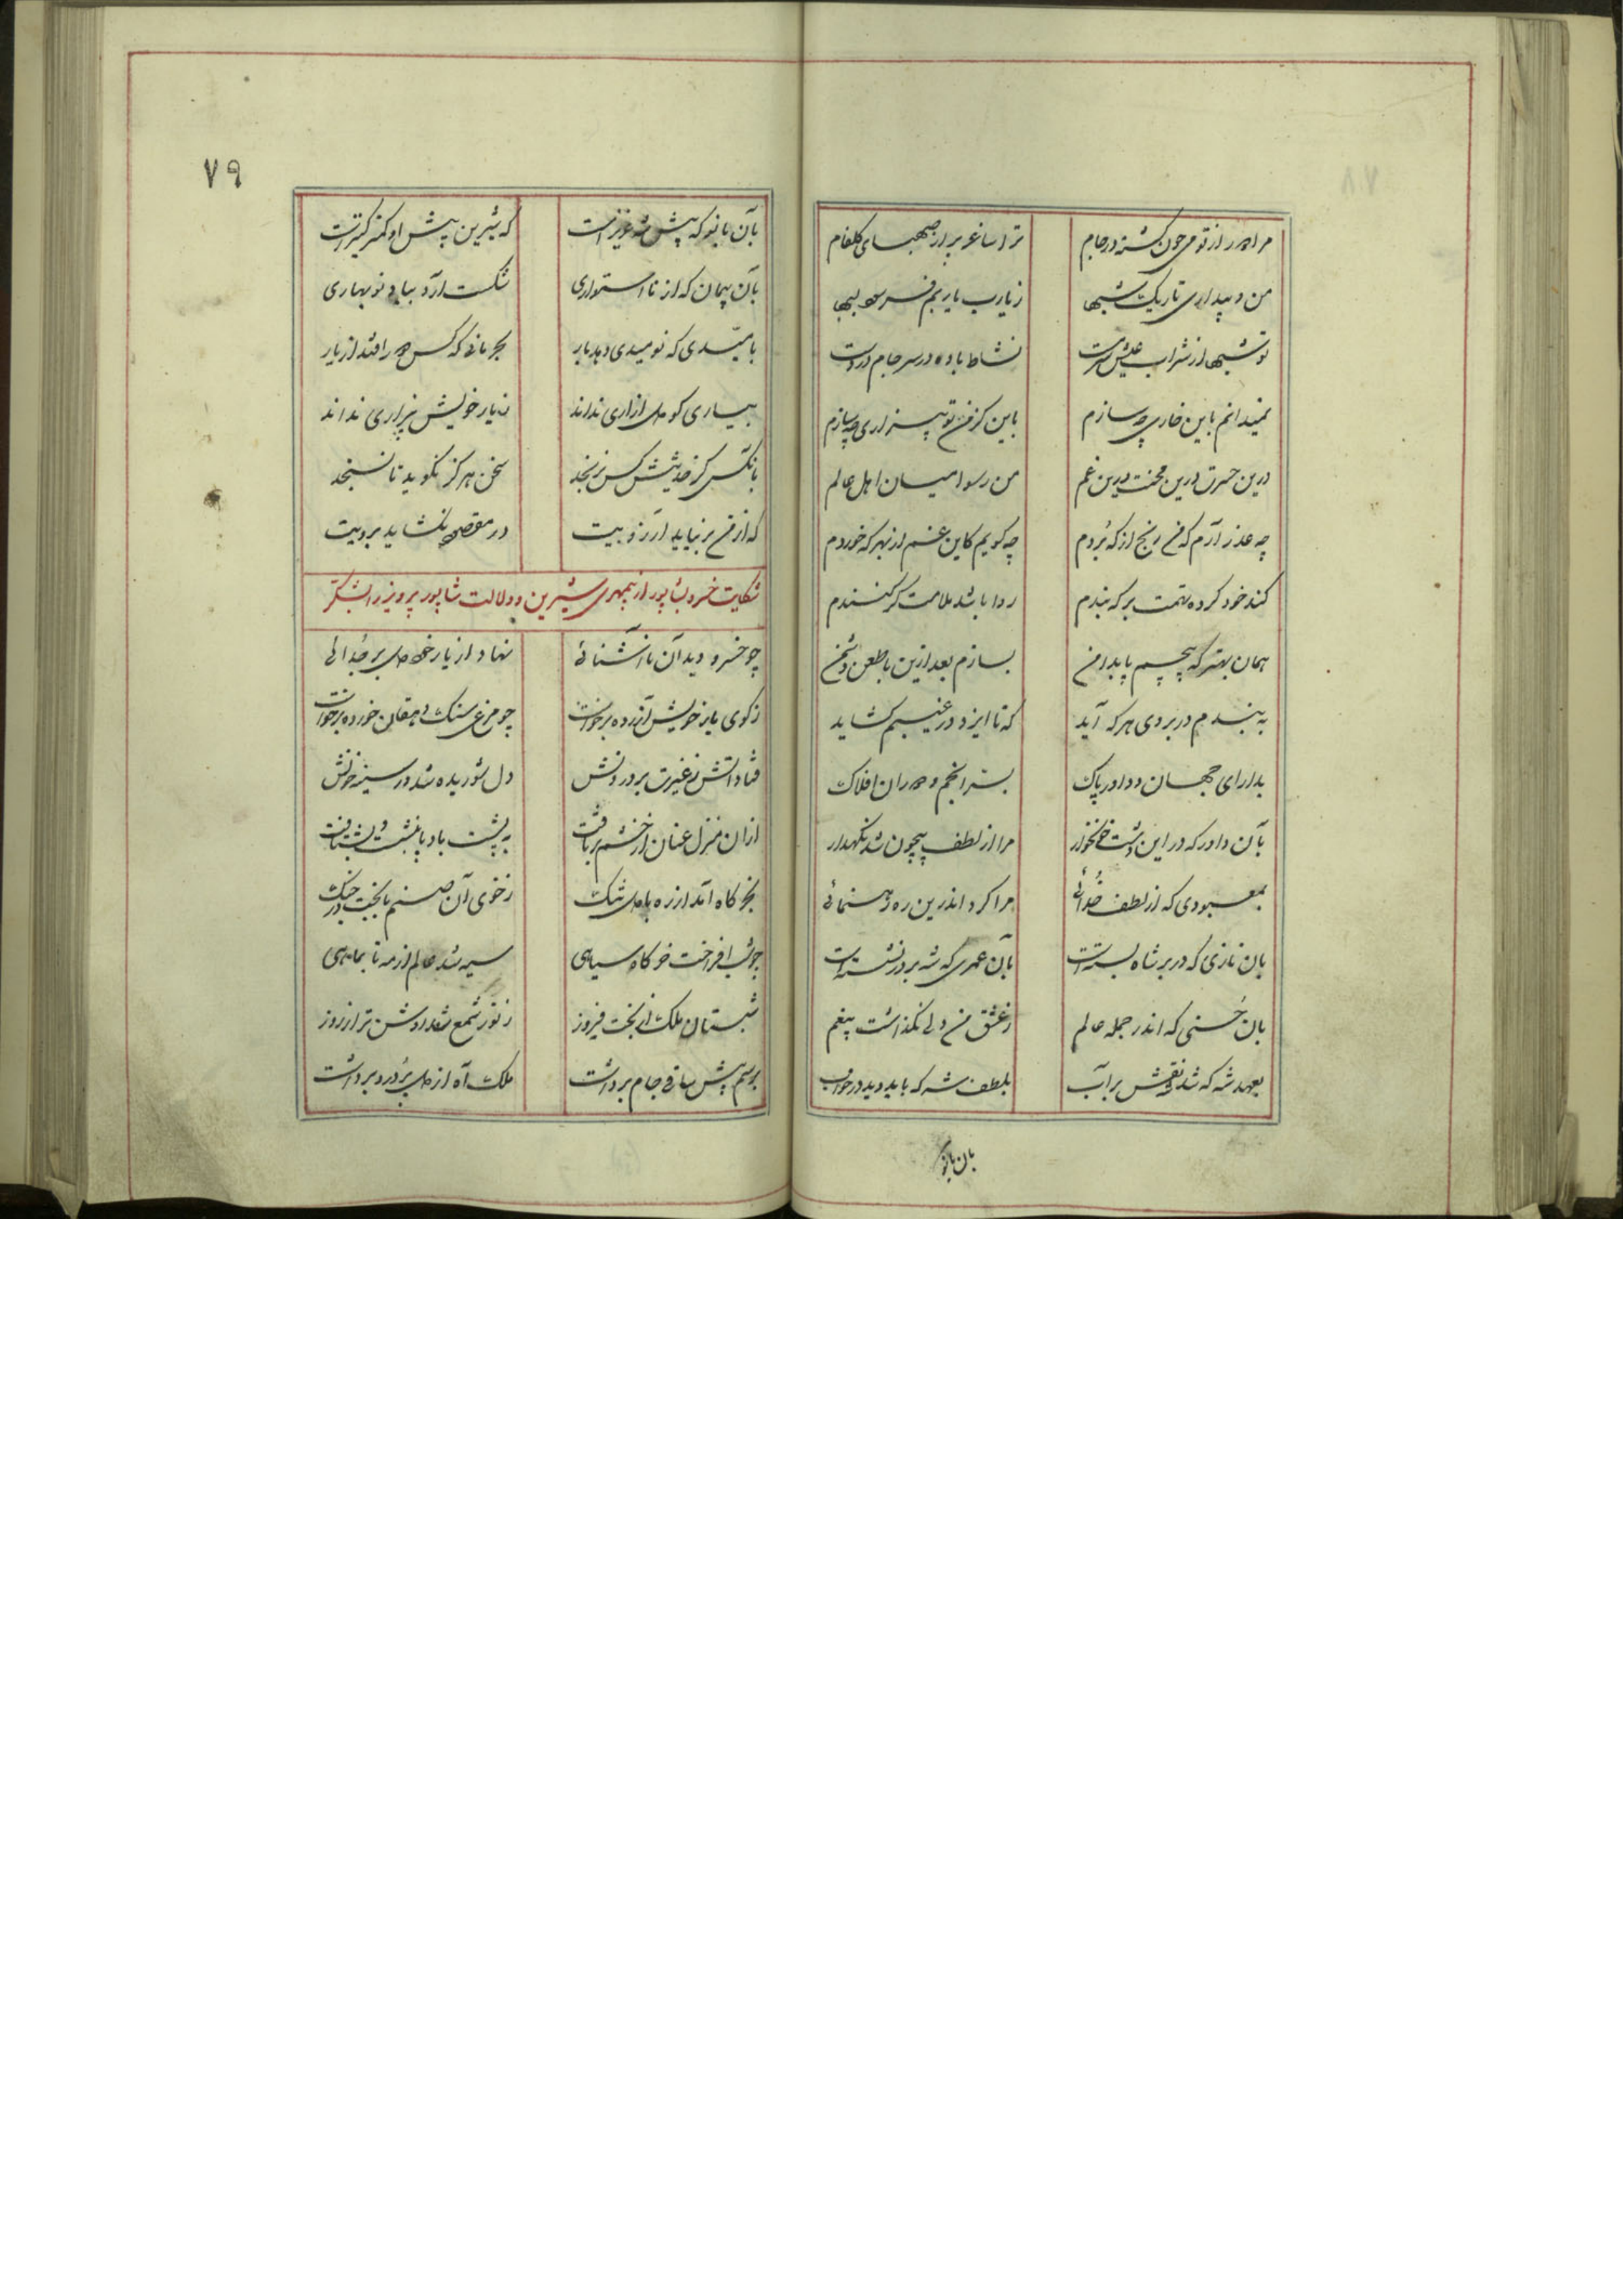 مرا دور از تو می خون گشته در جام ترا ساغر پر از صهبای گلفام
من و بیداری تاریک شبها ز یارب یاربم فرسوده لبها
تو شبها از شراب عیش سرمست نشاط باده در سر جام در دست
نمیدانم باین خواری چه سازم باین کز من تو بیزاری چه سازم
درین حسرت درین محنت درین غم من رسوا میان اهل عالم
چه عذر آرم که من رنج از که بردم چه گویم کاین غم از بهر که خوردم
کند خود کرده تهمت بر که بندم روا باشد ملامت گر کنندم
همان بهتر که پیچم پا بدامن بسازم بعد ازین با طعن دشمن
به بندم در بروی هر که آید که تا ایزد در غیبم گشاید
بدارای جهان و داور پاک بسیر انجم و دوران افلاک
بآن داور که در این دشت خونخوار مرا از لطف بیچون شد نگهدار
بمعبودی که از لطف خدائی مرا کرد اندرین ره رهنمائی
بان نازی که در بر شاه بسته است بآن عهدی که شه بر در نشسته است
بان حسنی که اندر جمله عالم ز عشق من دلی نگذاشت بیغم
بعهد شه که شد نقش بر آب بلطف شه که باید دید در خواب
بان بانو
۷۹
بآن بانو که پیش شه عزیز است که شیرین پیش او کمتر کنیز است
بآن پیمان که از نااستواری شکست آرد بباد نوبهاری
بامیدی که نومیدی دهد بار بحرمانی که کس را افتد از یار
بیاری کو دل ازاری نداند ز یار خویش بیزاری نداند
بانکس کز حدیثش کس نرنجد سخن هرگز نگوید تا نسنجد
که از من بر نیاید آرزویت در مقصود نگشاید برویت
شکایت خسرو بشاپور از بیمهری شیرین و دلالت شاپور پرویز را بشکر
چو خسرو دید آن ناآشنائی نهاد از یار خود دل بر جدائی
ز کوی یار خویش آزرده برخواست چو مرغی سنگ دهقان خورده برخواست
فتاد آتش ز غیرت بر درونش دل شوریده شد در سینه خونش
ازان منزل عنان از خشم برتافت به پشت بادپا بنشست و بشتافت
بخرگاه آمد از ره با دل تنگ ز خوی آن صنم با بخت در جنگ
چو شب افراخت خرگاه سیاهی سیه شد عالم از مه تا بماهی
شبستان ملک از بخت فیروز ز نور شمع شد روشن تر از روز
برسم پیش ساقی جام برداشت ملک آه از دل پر درد برداشت